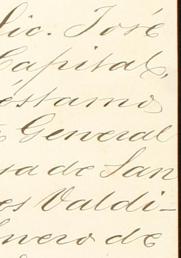 Lic. José
Capital,
éstamo
General
sa de San
es Valdi-
Enero de